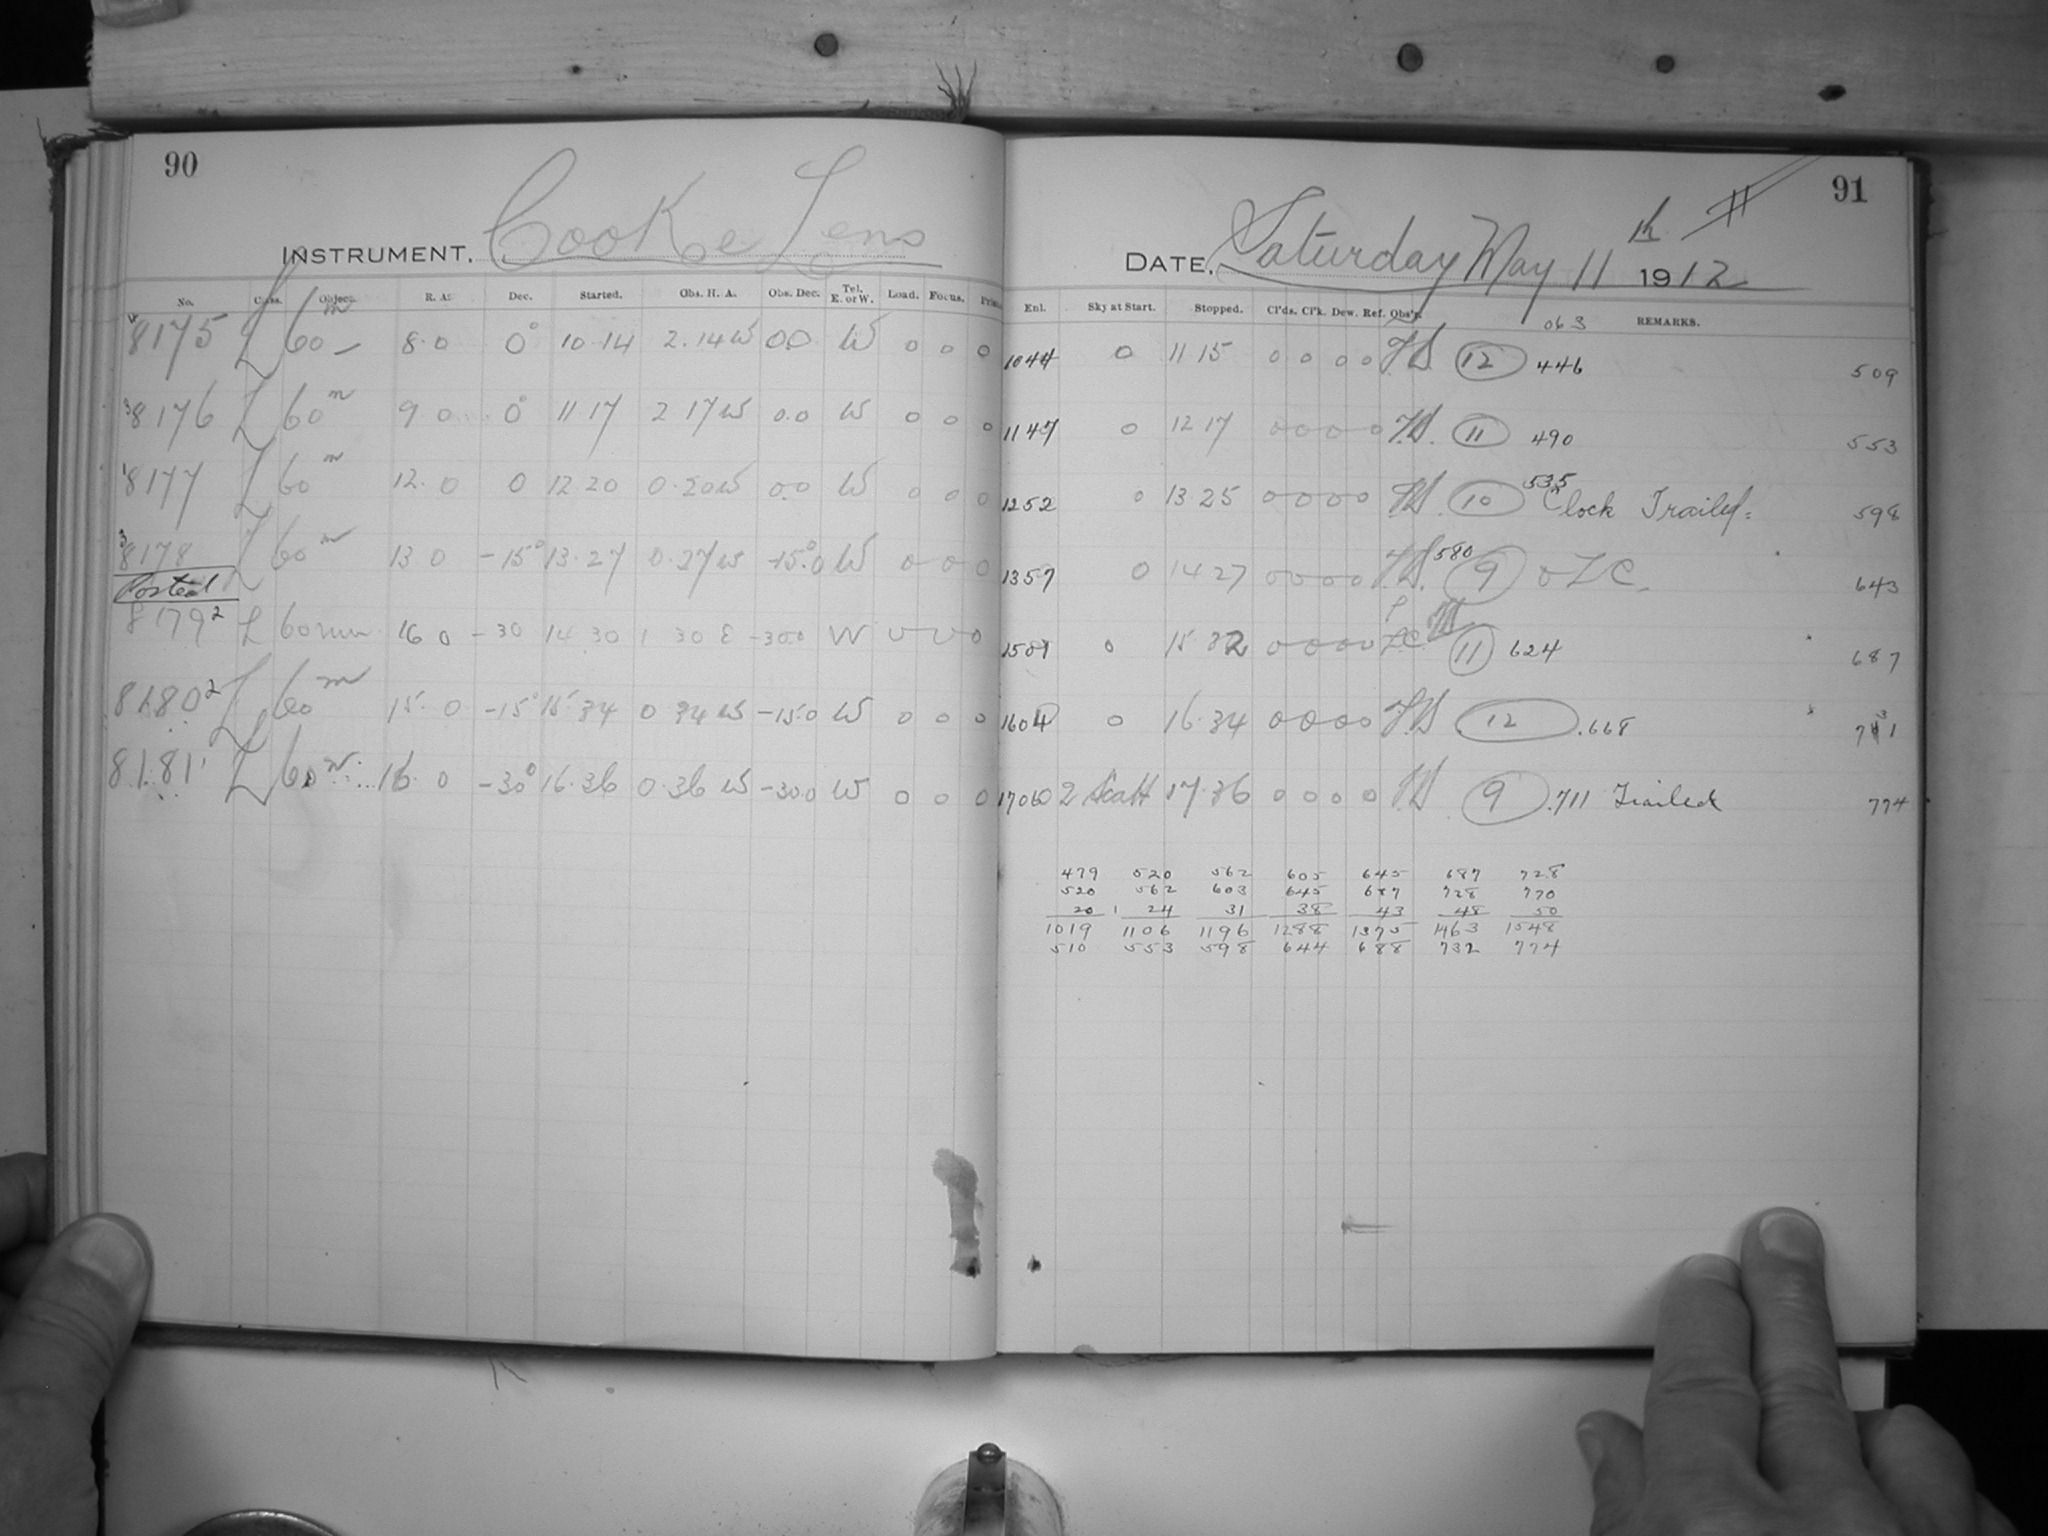 90
INSTRUMENT. Cooke Lens
No. Class. Object. R. A. Dec. Started. Obs. H. A. Obs. Dec. Tel. E. or W. Load. Focus.
4 8175 L 60 m 8.0 0° 10.14 2.14 W 0.0 W 0 0 0
3 8176 L 60 m 9 0 0° 11 17 2 17 W 0.0 W 0 0 0
1 8177 L 60 m 12. 0 0 12 20 0.20 W 0.0 W 0 0 0
3 8178 L 60 m 13 0 -15° 13.27 0.27 W -15.0 W 0 0 0
Posted
8179 2 L 60 min 16 0 -30 14 30 1 30 E -30.0 W 0 0 0
8180 2 L 60 m 15. 0 -15° 15.34 0 34 W -15.0 W 0 0 0
8181 1 L 60 m 16. 0 -30° 16.36 0.36 W -30.0 W 0 0 0
91
DATE, Saturday May 11 th 1912
Enl. Sky at Start. Stopped. Cl'ds. Cl'k. Dew. Ref. Obs'r. REMARKS.
063
1044 0 11 15 0 0 0 0 12 446 509
1147 0 12 17 0 0 0 0 11 490 553
1252 0 13.25 0 0 0 0 10 535 Clock Trailed. 598
1357 0 14 27 0 0 0 0 580 9 0 L C. 643
0 15 32 0 0 0 0 L.C. 11 624 687
1604 0 16.34 0 0 0 0 12 .668 731
1706 2 Scatt 17.36 0 0 0 0 9 .711 Trailed 774
479 520 562 605 645 687 728
520 562 603 645 687 728 770
20 24 31 38 43 48 50
1019 1106 1196 1288 1375 1463 1548
510 553 598 644 688 732 774